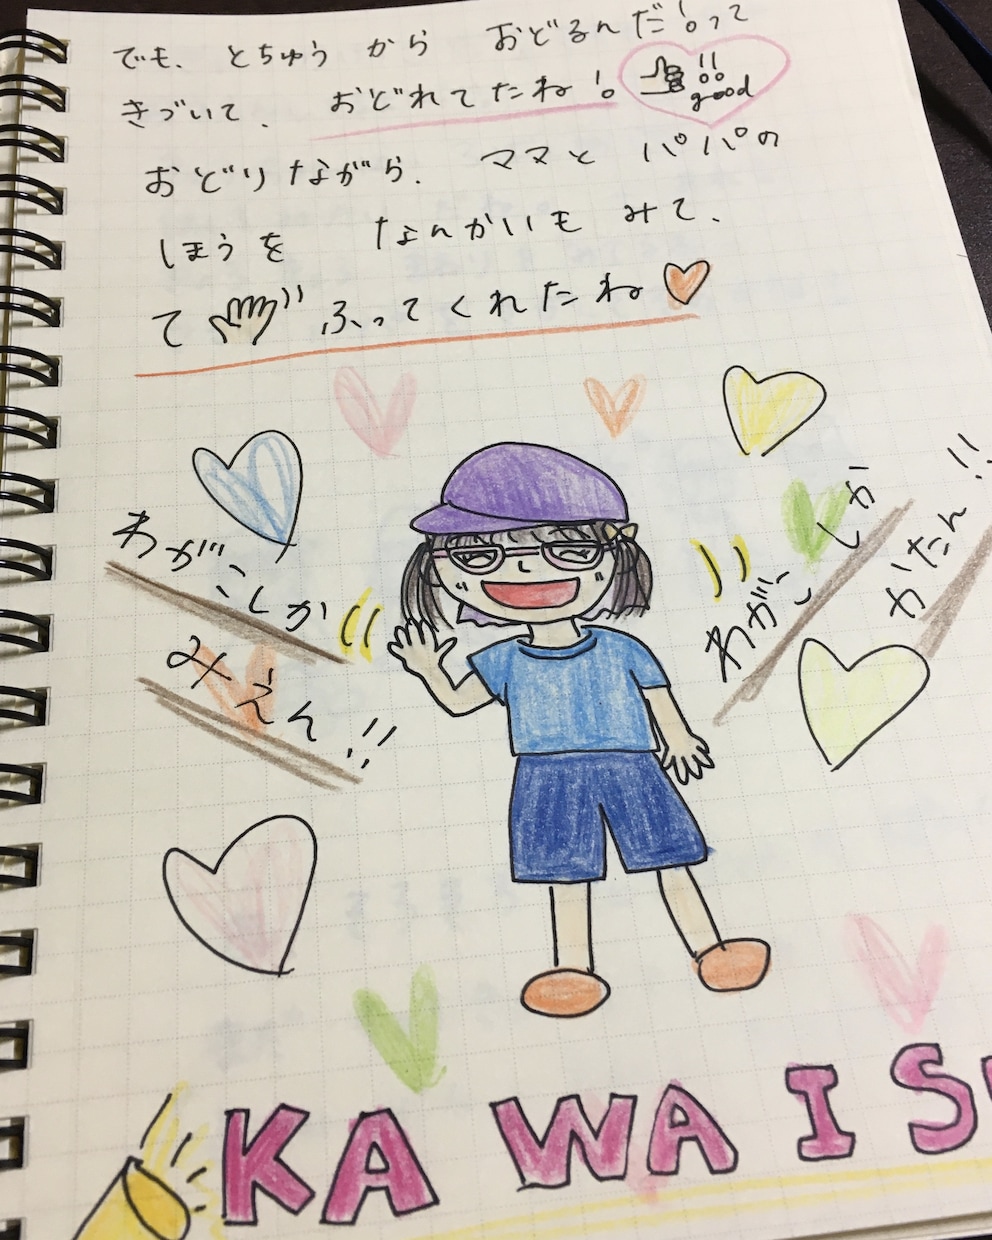 でも、とちゅうから おどるんだ!って
きづいて、おどれてたね!
good
おどりながら、ママと パパの
しほうを なんかいも みて、
て ふってくれたね
わがこしか
みえん!!
わがこしか
かたん!!
KAWAIS